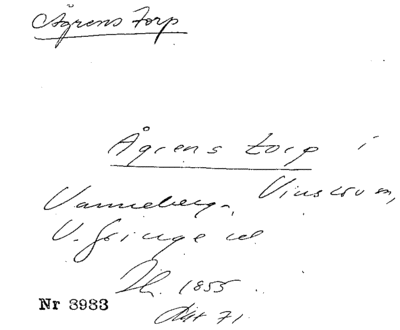 Ågrens torp
Ågrens torp i
Vanneberga, Vinslövs sn,
V. Göinge hd
1855
Okt 71.
Nr 3933